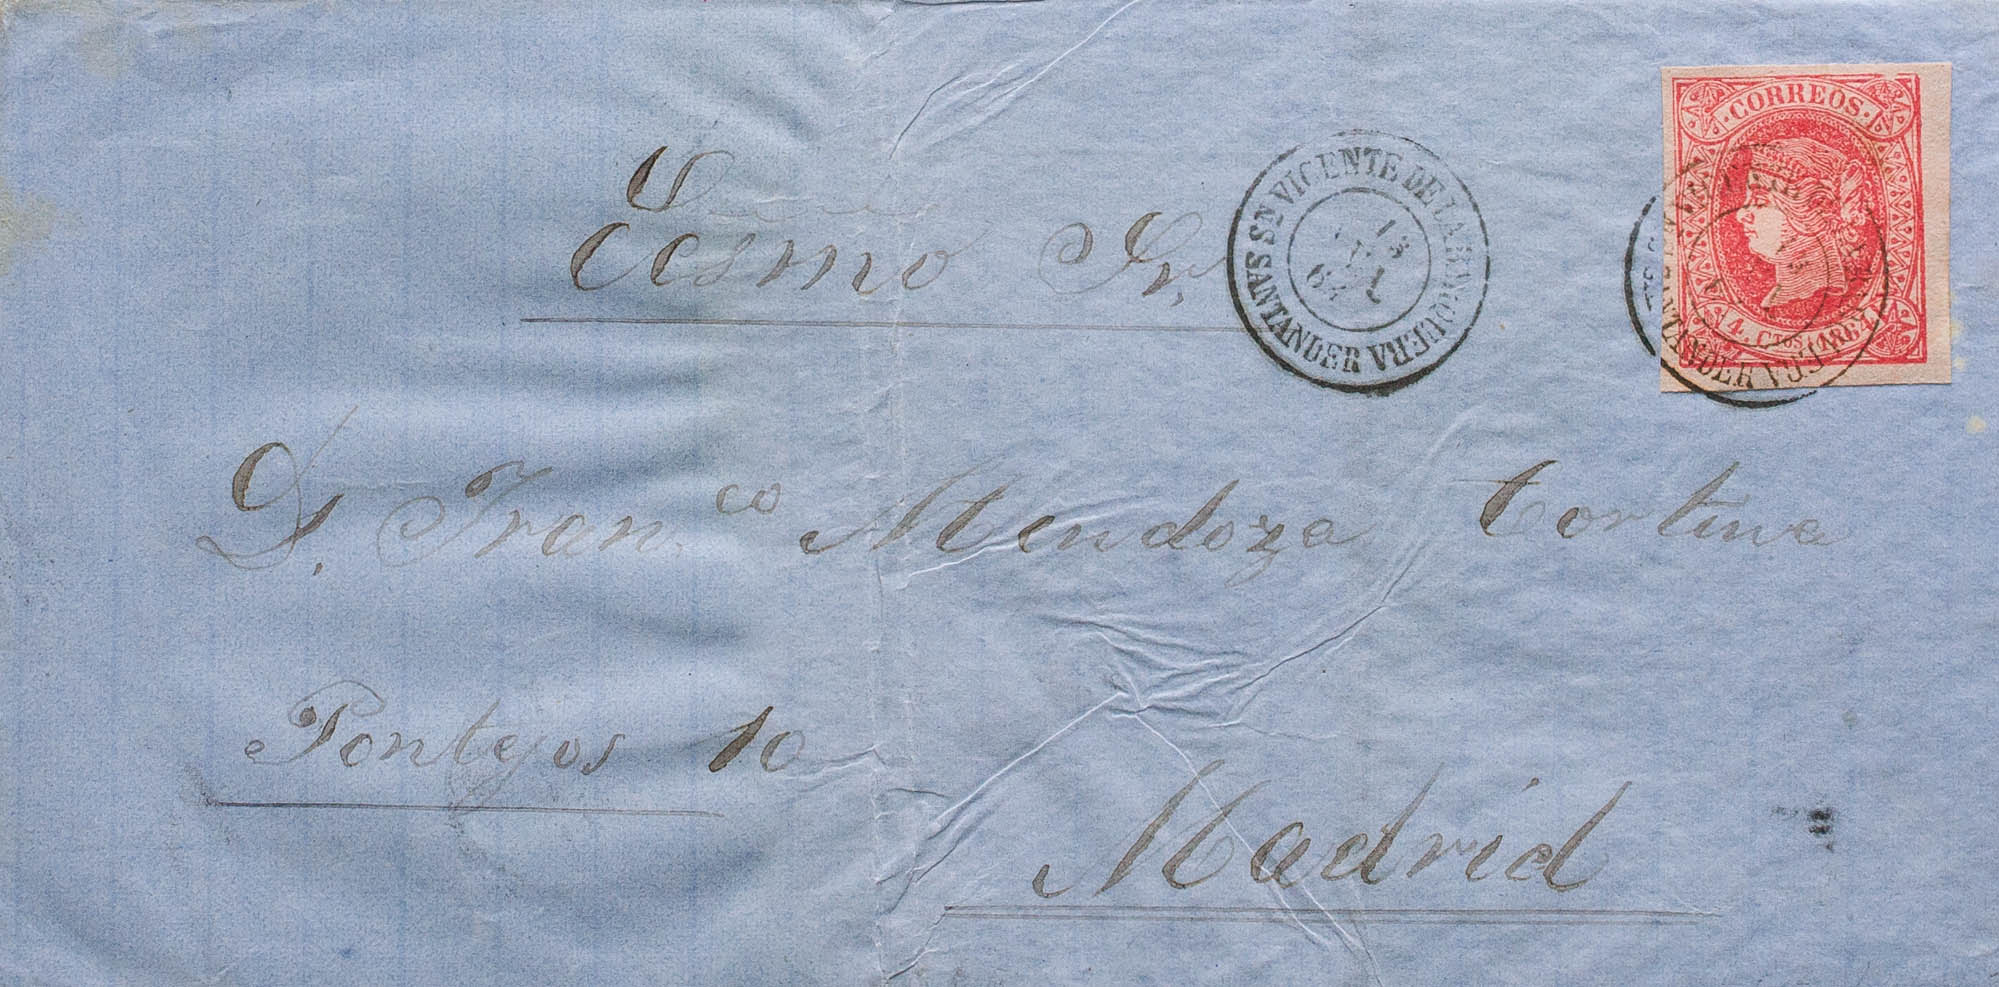 CORREOS.
Ecsmo Sr.
SN VICENTE DE LA BARQUERA
SANTANDER
13
64
4. CTOS.
SANTANDER
D. Fran.co Mendoza Cortina
Pontejos 10
Madrid